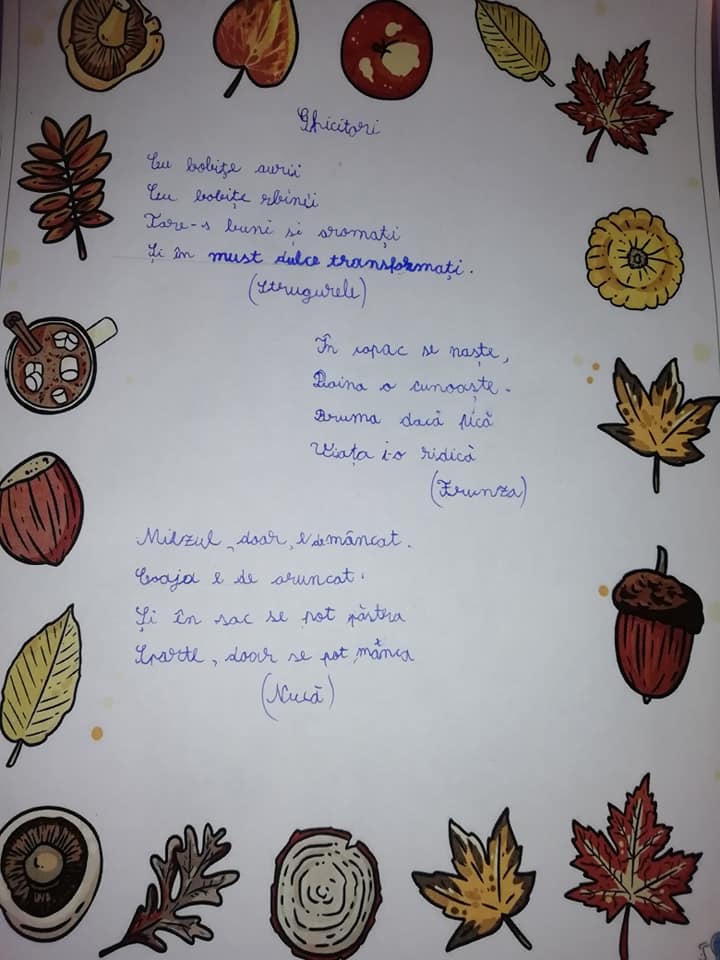 Ghicitori
Cu bobițe aurii
Cu bobițe rbinii
Tare-s buni și aromați
Și în must dulce transformați.
(Strugurele)
În copac se naște,
Doina o cunoaște.
Bruma dacă pică
Viața i-o ridică
(Frunza)
Miezul, doar, e de mâncat.
Coaja e de aruncat.
Și în sac se pot păstra
Sparte, doar se pot mânca
(Nucă)